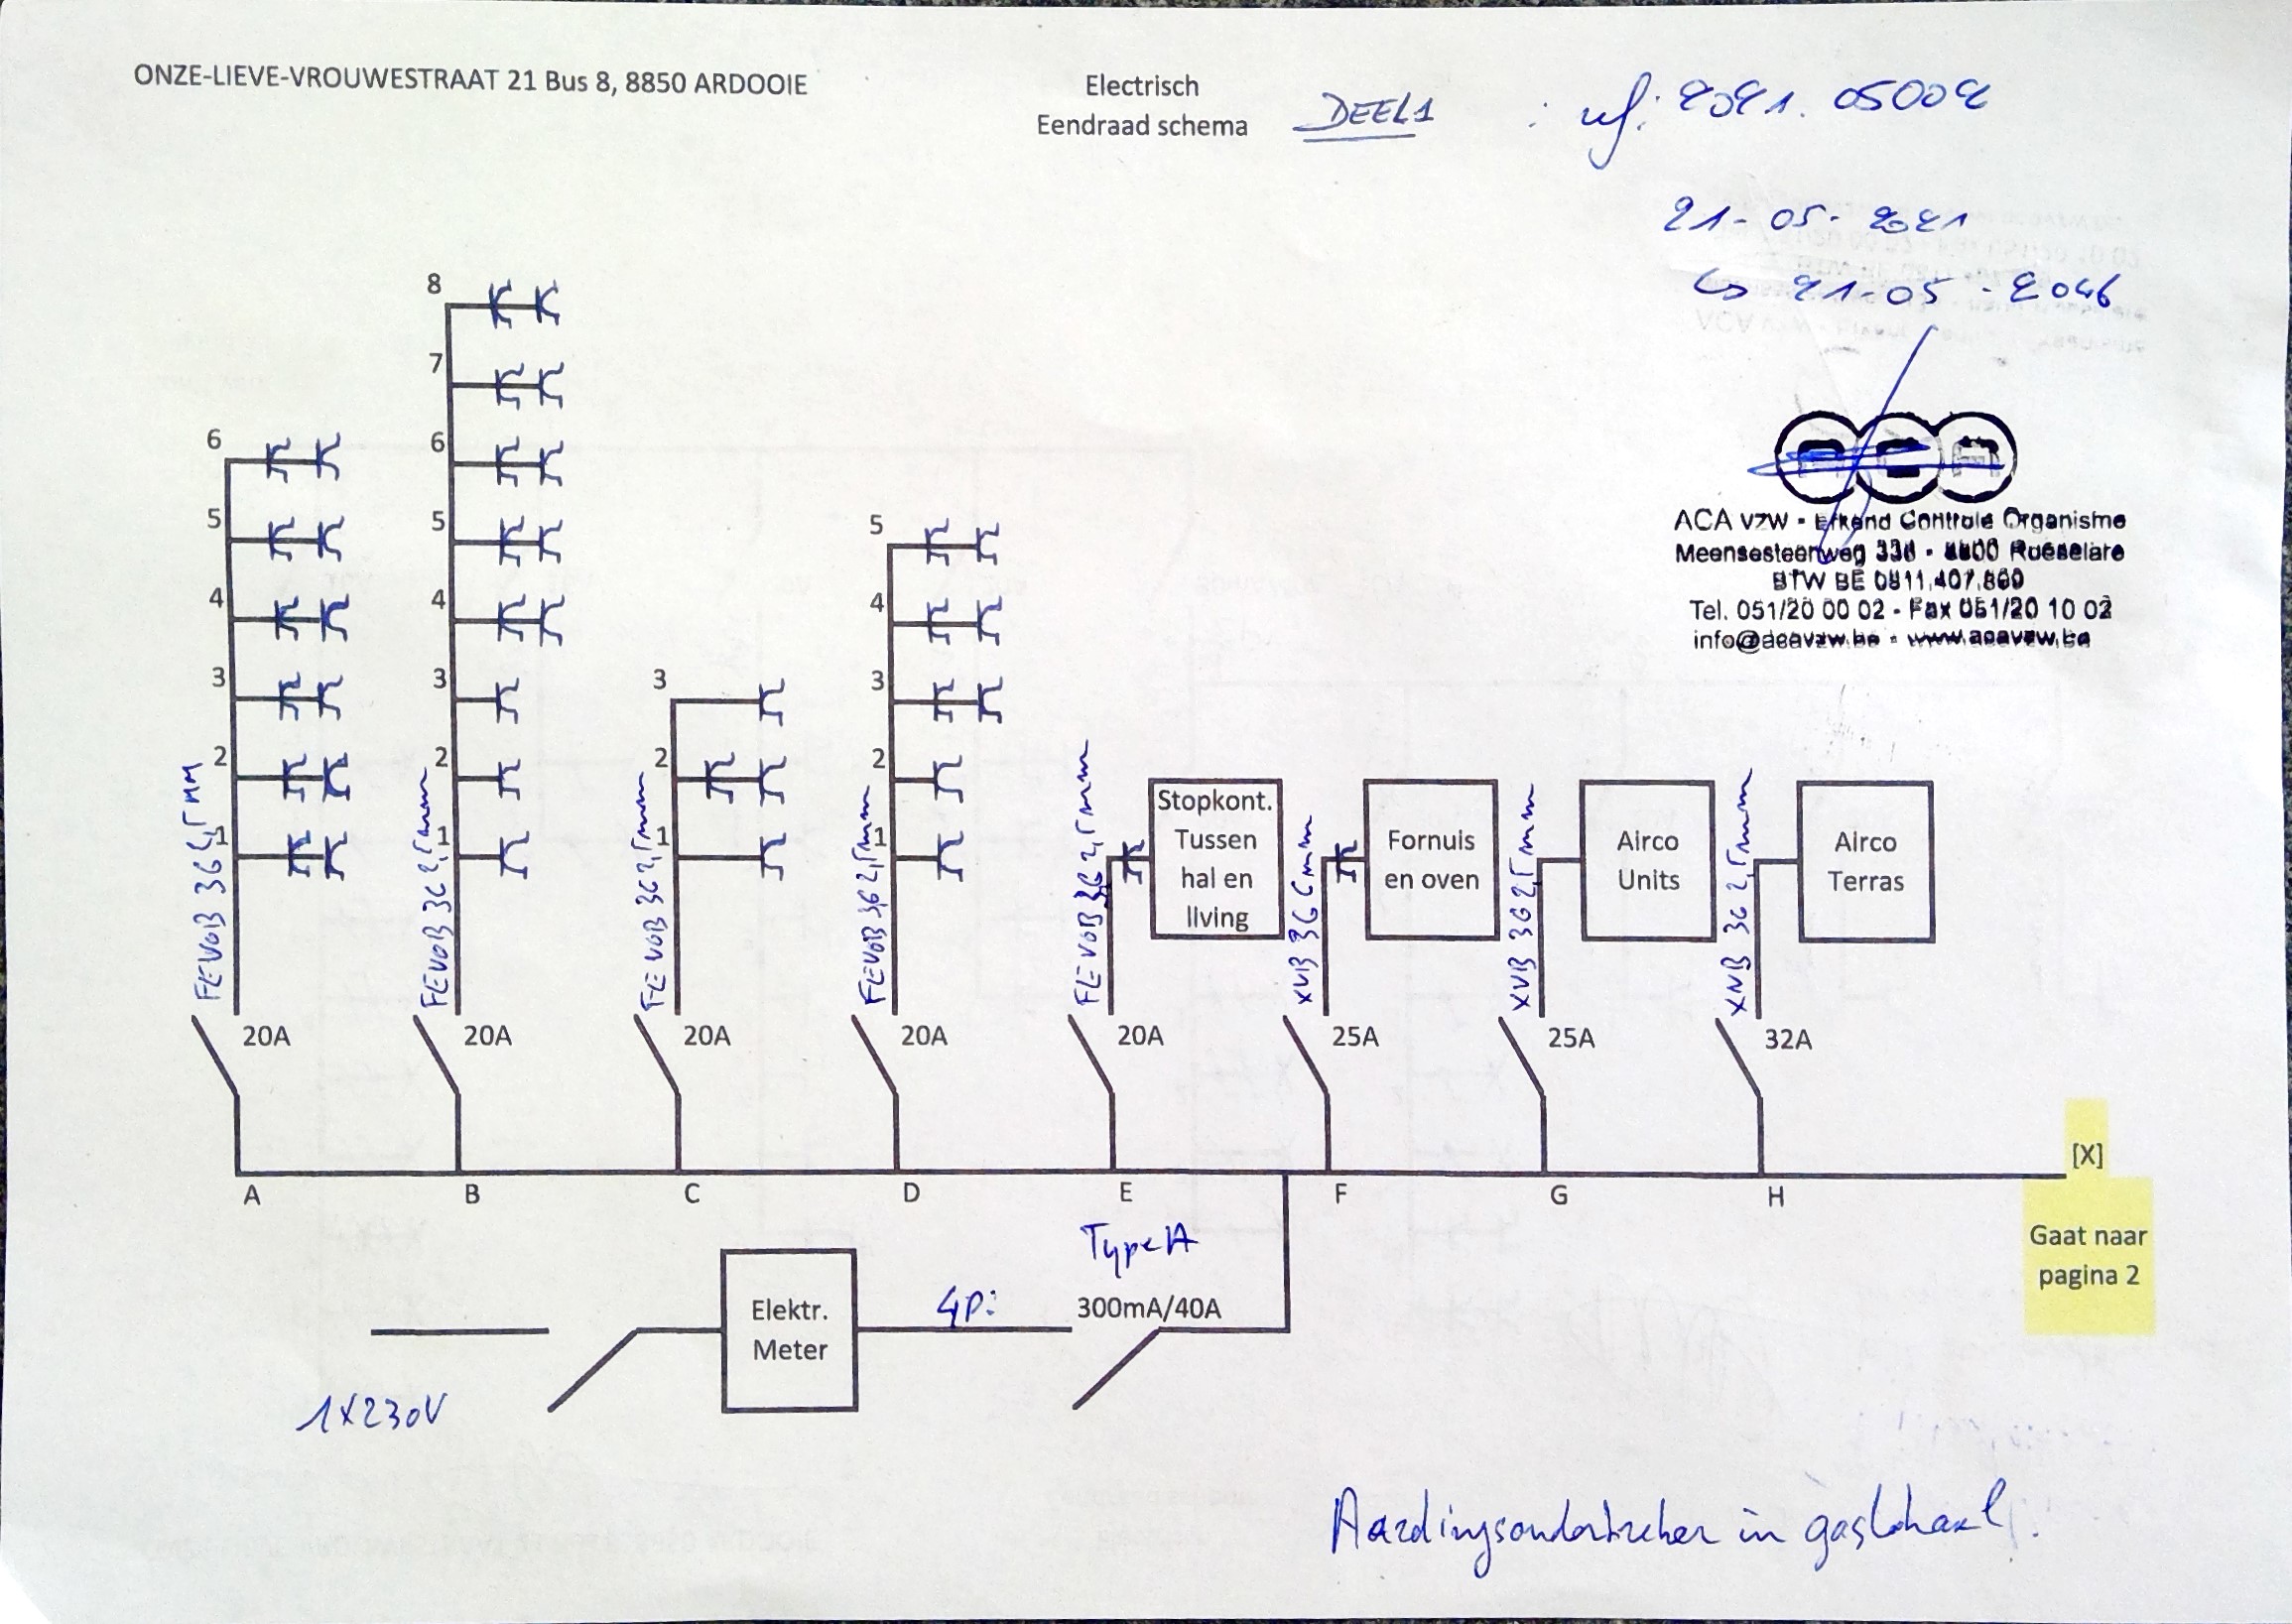 ONZE-LIEVE-VROUWESTRAAT 21 Bus 8, 8850 ARDOOIE
Electrisch
Eendraad schema
DEEL 1
: ref: 2021. 05002
21-05-2021
↳ 21-05-2046
ACA vzw - Erkend Controle Organisme
Meensesteenweg 338 - 8800 Roeselare
BTW BE 0811.407.869
Tel. 051/20 00 02 - Fax 051/20 10 02
info@acavzw.be - www.acavzw.be
8
7
6
5
4
3
2
1
6
5
4
3
2
1
3
2
1
5
4
3
2
1
FEVOB 3G 2,5mm
FEVOB 3G 2,5mm
FEVOB 3G 2,5mm
FEVOB 3G 2,5mm
FEVOB 3G 2,5mm
XVB 3G 6mm
XVB 3G 2,5mm
XVB 3G 2,5mm
Stopkont.
Tussen
hal en
living
Fornuis
en oven
Airco
Units
Airco
Terras
20A
20A
20A
20A
20A
25A
25A
32A
A
B
C
D
E
F
G
H
[X]
Gaat naar
pagina 2
Type A
4P:
300mA/40A
Elektr.
Meter
1X230V
Aardingsonderbreker in gaslokaal.